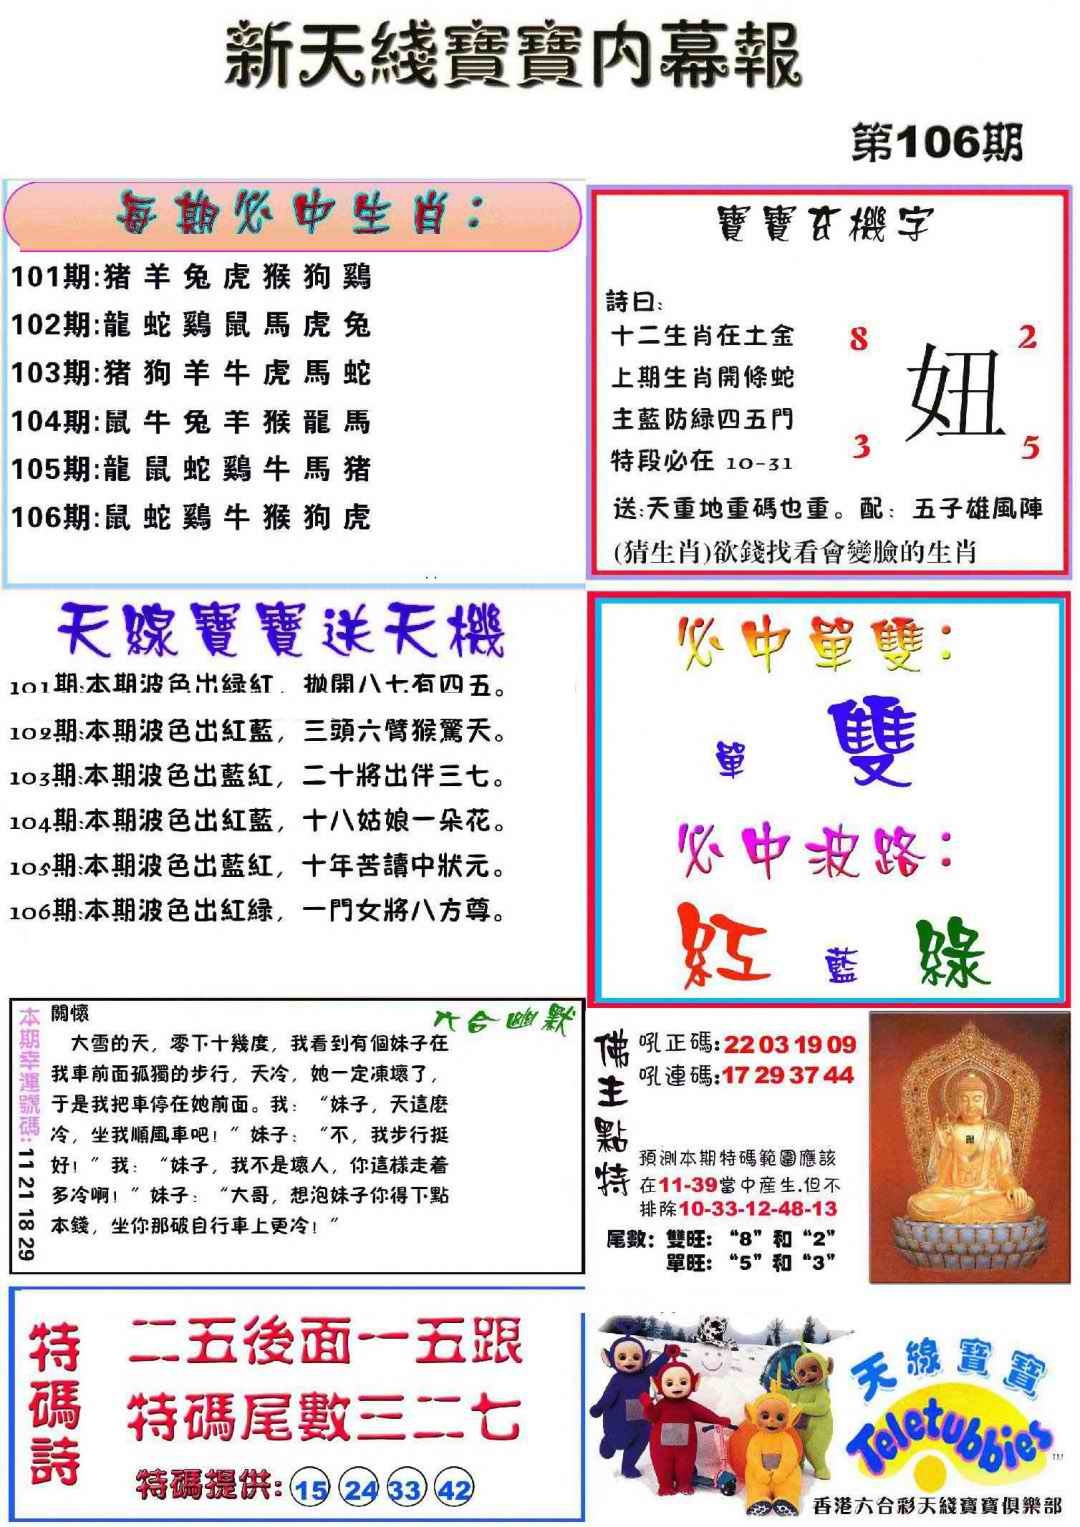 新天綫寶寶内幕報
第106期
每期必中生肖：
101期:猪羊兔虎猴狗鷄
102期:龍蛇鷄鼠馬虎兔
103期:猪狗羊牛虎馬蛇
104期:鼠牛兔羊猴龍馬
105期:龍鼠蛇鷄牛馬猪
106期:鼠蛇鷄牛猴狗虎
寶寶玄機字
詩曰:
十二生肖在土金
上期生肖開條蛇
主藍防緑四五門
特段必在 10-31
8 2
妞
3 5
送:天重地重碼也重。配：五子雄風陣
(猜生肖)欲錢找看會變臉的生肖
天線寶寶送天機
101期:本期波色出緑紅，抛開八七有四五。
102期:本期波色出紅藍，三頭六臂猴驚天。
103期:本期波色出藍紅，二十將出伴三七。
104期:本期波色出紅藍，十八姑娘一朵花。
105期:本期波色出藍紅，十年苦讀中狀元。
106期:本期波色出紅緑，一門女將八方尊。
必中單雙：
單 雙
必中波路：
紅 藍 緑
本期幸運號碼:11 21 18 29
六合幽默
關懷
大雪的天，零下十幾度，我看到有個妹子在
我車前面孤獨的步行，天冷，她一定凍壞了，
于是我把車停在她前面。我：“妹子，天這麽
冷，坐我順風車吧！”妹子：“不，我步行挺
好！”我：“妹子，我不是壞人，你這樣走着
多冷啊！”妹子：“大哥，想泡妹子你得下點
本錢，坐你那破自行車上更冷！”
佛主點特
吼正碼:22 03 19 09
吼連碼:17 29 37 44
預測本期特碼範圍應該
在11-39當中産生.但不
排除10-33-12-48-13
尾數：雙旺：“8”和“2”
單旺：“5”和“3”
特碼詩
二五後面一五跟
特碼尾數三二七
特碼提供: 15 24 33 42
天線寶寶
Teletubbies
TM
香港六合彩天綫寶寶俱樂部